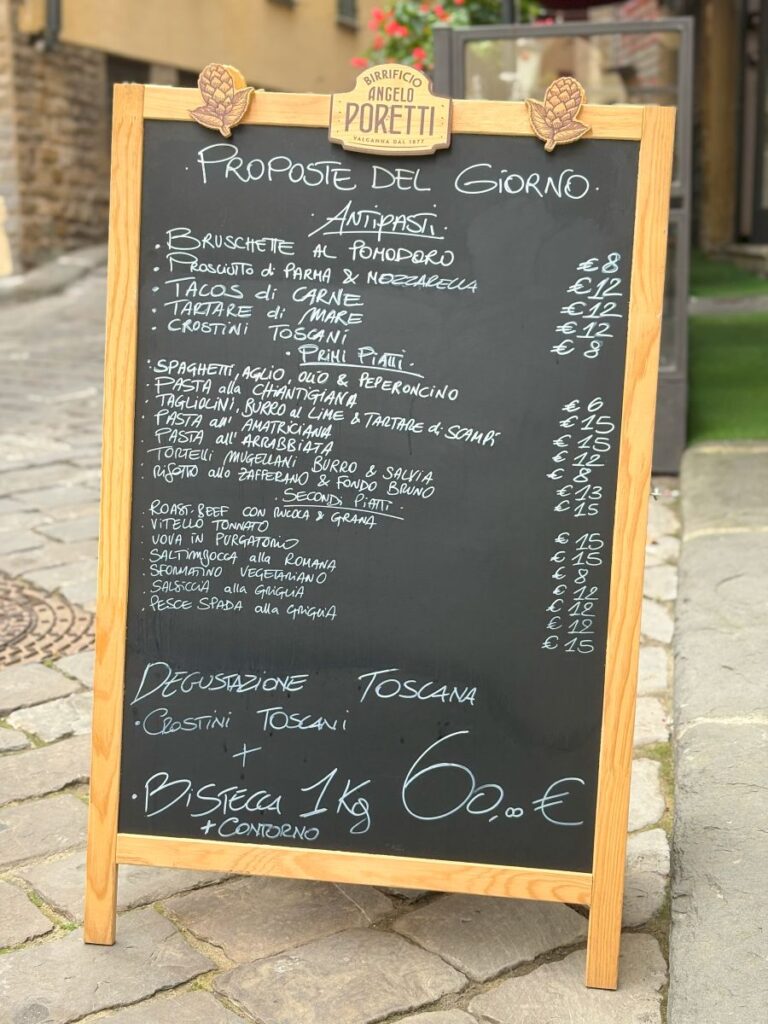 BIRRIFICIO
ANGELO
PORETTI
VALGANNA DAL 1877
· PROPOSTE DEL GIORNO ·
· ANTIPASTI ·
· BRUSCHETTE AL POMODORO €8
· PROSCIUTTO di PARMA & MOZZARELLA €12
· TACOS di CARNE €12
· TARTARE di MARE €12
· CROSTINI TOSCANI €8
· PRIMI PIATTI ·
· SPAGHETTI, AGLIO, OLIO & PEPERONCINO €6
· PASTA alla CHIANTIGIANA €15
· TAGLIOLINI, BURRO al LIME & TARTARE di SCAMPI €15
· PASTA all'AMATRICIANA €12
· PASTA all'ARRABBIATA €8
· TORTELLI MUGELLANI BURRO & SALVIA €13
· RISOTTO allo ZAFFERANO & FONDO BRUNO €15
· SECONDI PIATTI ·
· ROAST-BEEF CON RUCOLA & GRANA €15
· VITELLO TONNATO €15
· UOVA IN PURGATORIO €8
· SALTIMBOCCA alla ROMANA €12
· SFORMATINO VEGETARIANO €12
· SALSICCIA alla GRIGLIA €12
· PESCE SPADA alla GRIGLIA €15
DEGUSTAZIONE TOSCANA
· CROSTINI TOSCANI
+
· BISTECCA 1Kg 60,00 €
+ CONTORNO